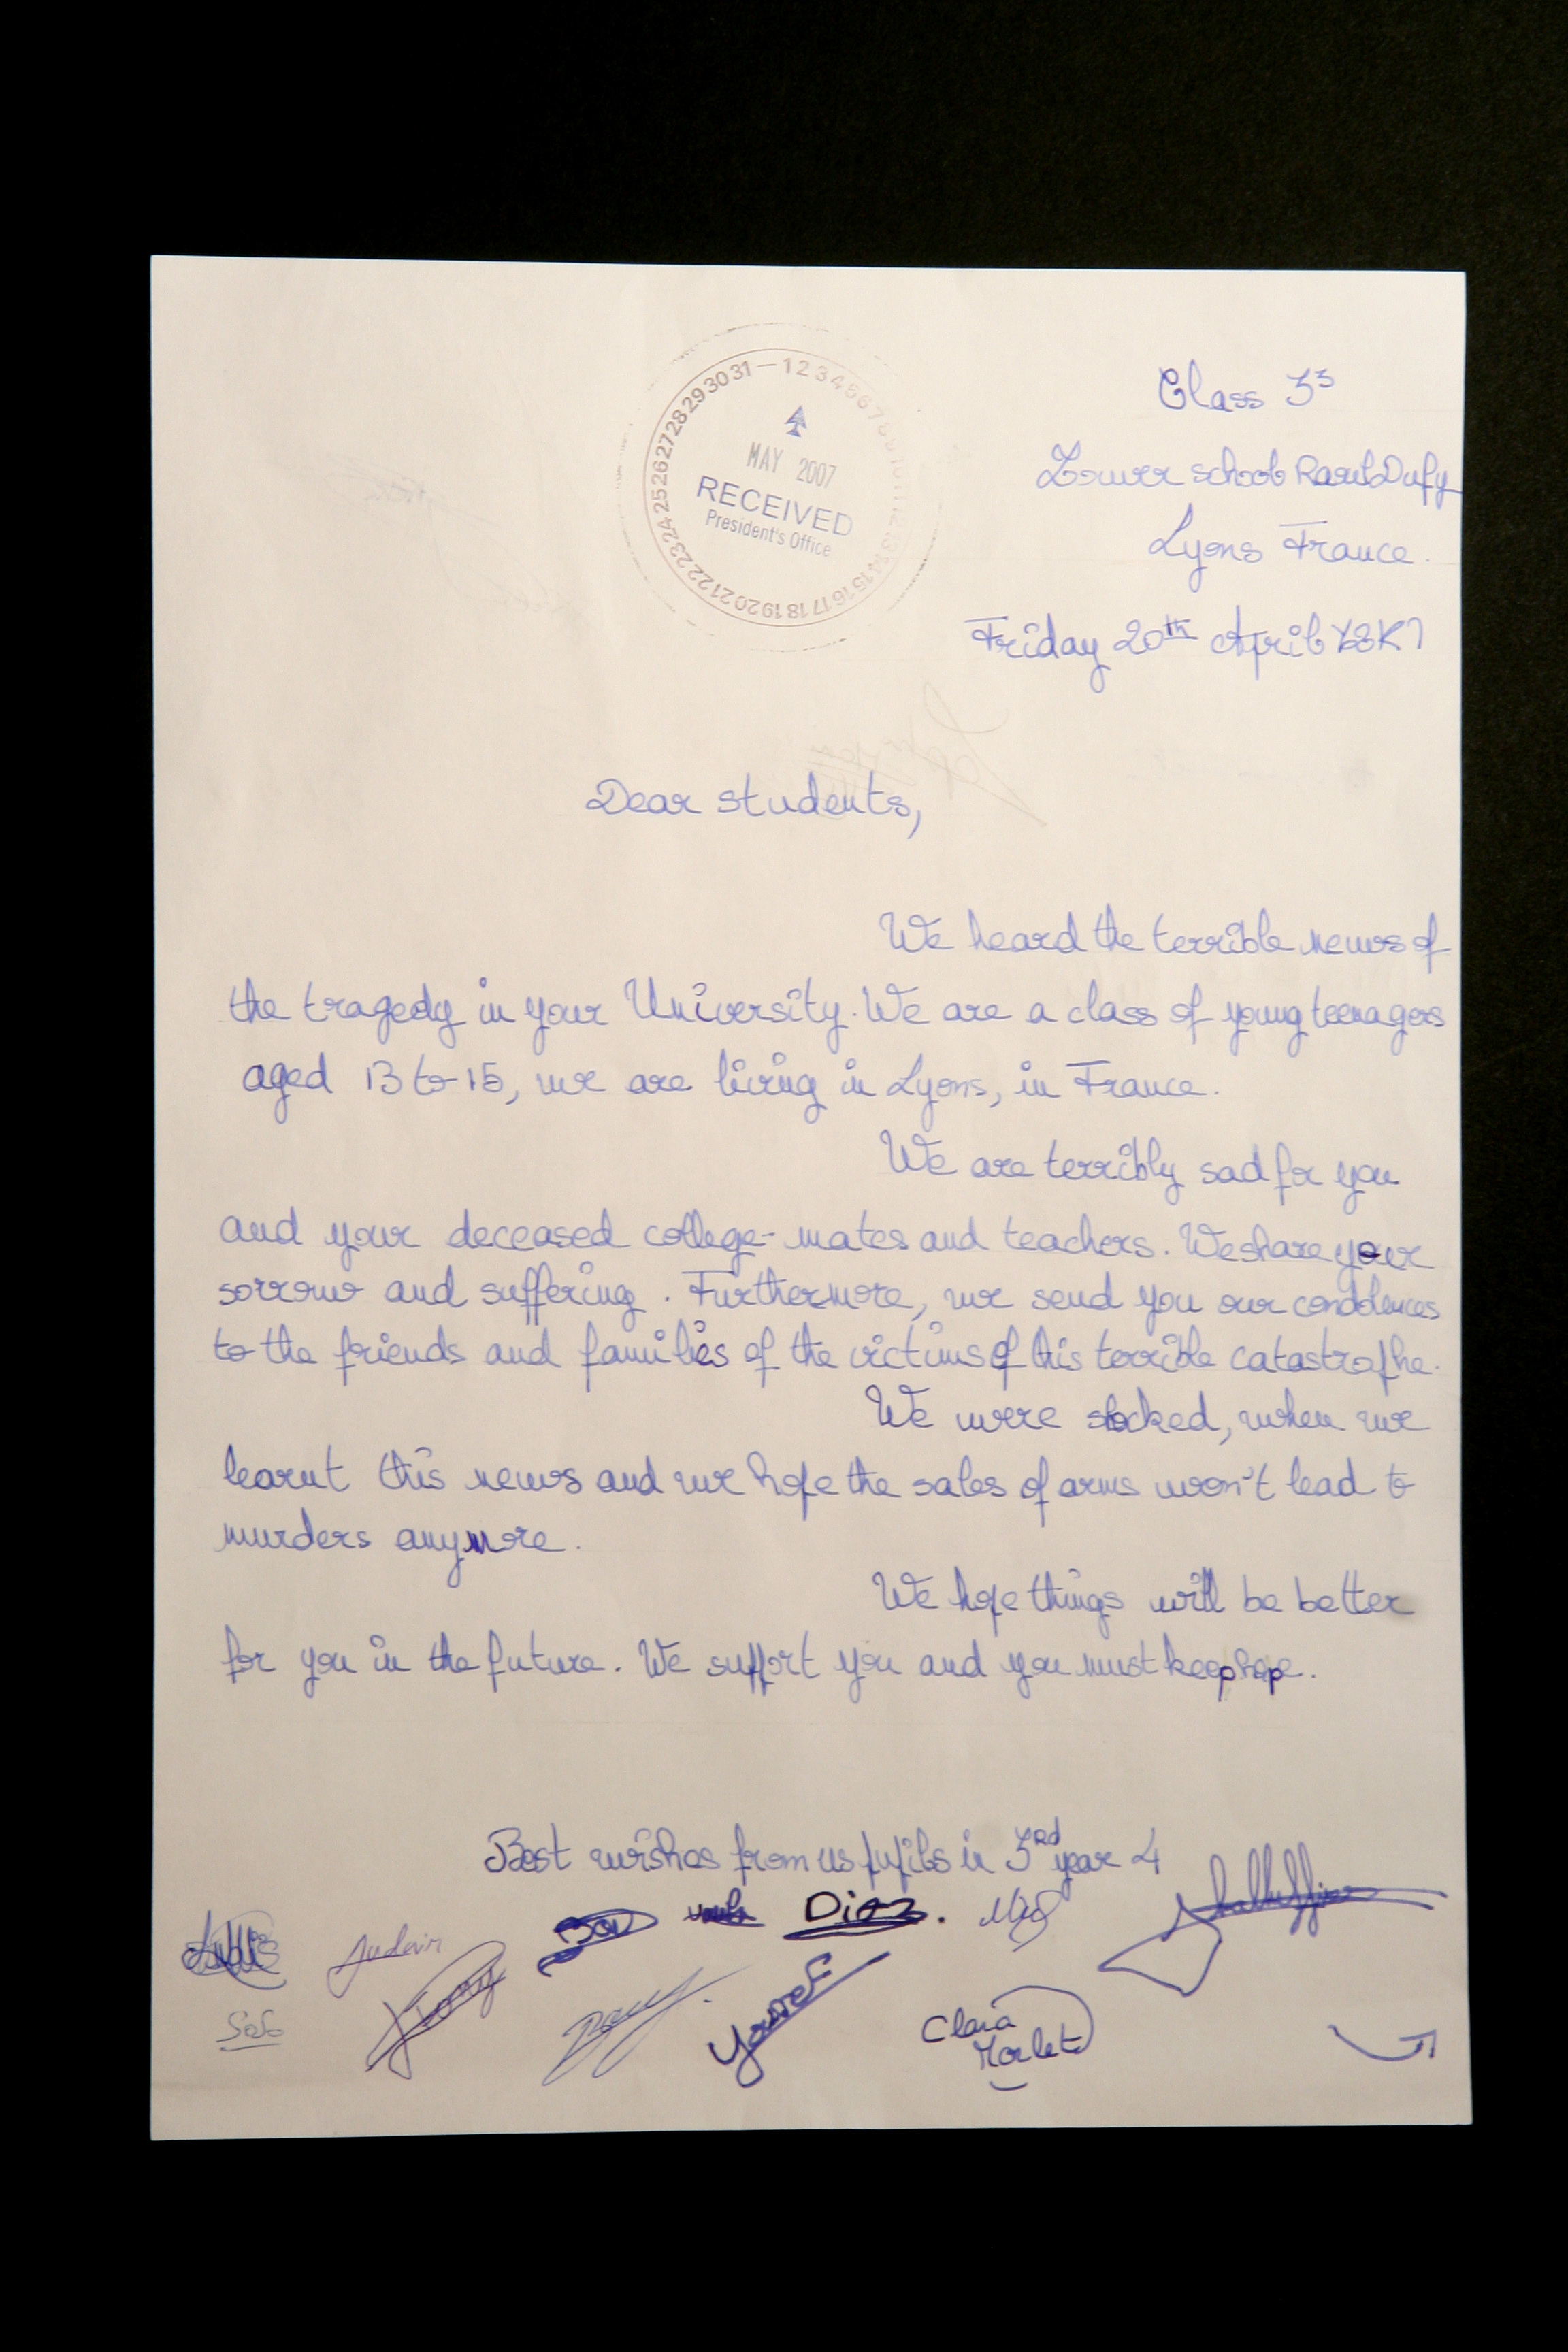 1 2 3 4 5 6 7 8 9 10 11 12 13 14 15 16 17 18 19 20 21 22 23 24 25 26 27 28 29 30 31
MAY 2007
RECEIVED
President's Office
Class 3³
Lower school Raoul Dufy
Lyons France.
Friday 20th April Y2K7
Dear students,
We heard the terrible news of
the tragedy in your University. We are a class of young teenagers
aged 13 to 15, we are living in Lyons, in France.
We are terribly sad for you
and your deceased college-mates and teachers. We share your
sorrow and suffering. Furthermore, we send you our condolences
to the friends and families of the victims of this terrible catastrophe.
We were shocked, when we
learnt this news and we hope the sales of arms won't lead to
murders anymore.
We hope things will be better
for you in the future. We support you and you must keep hope.
Best wishes from us pupils in 3rd year 4
Diaz.
Youssef
Clara
Morlet